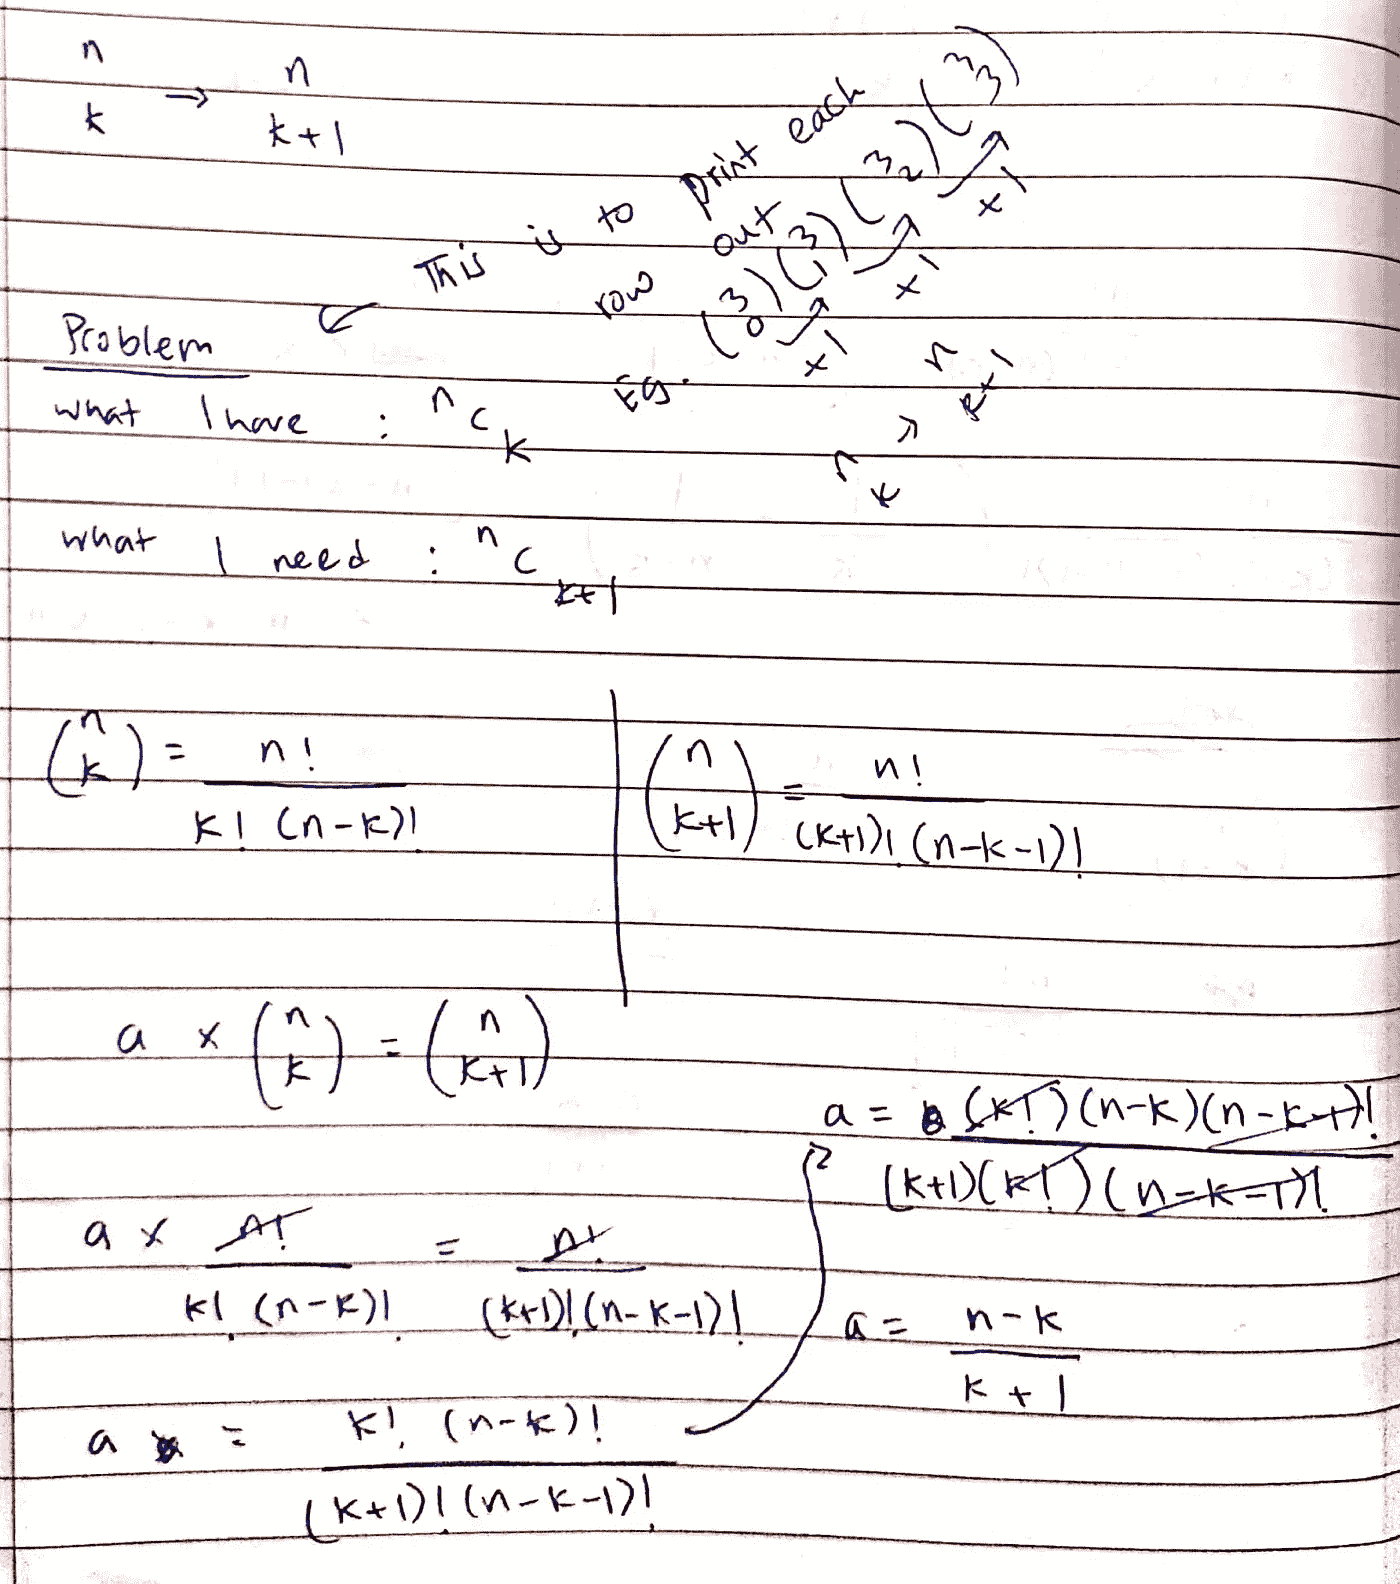 n/k → n/k+1
This is to print each
row out
Eg. (3 0) (3 1) (3 2) (3 3)
x1 x1 x1
n k → n k+1
Problem
what I have : ⁿC k
what I need : ⁿC k+1
(n k) = n! / k! (n-k)!
(n k+1) = n! / (k+1)! (n-k-1)!
a × (n k) = (n k+1)
a × n! / k! (n-k)! = n! / (k+1)! (n-k-1)!
a = k! (n-k)! / (k+1)! (n-k-1)!
a = (k!)(n-k)(n-k-1)! / (k+1)(k!)(n-k-1)!
a = n-k / k+1